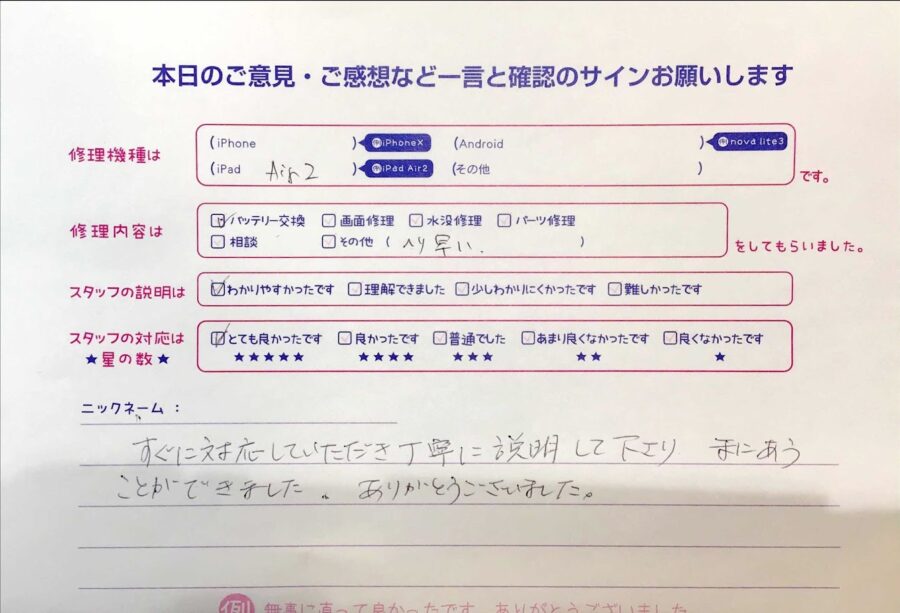 本日のご意見・ご感想など一言と確認のサインお願いします
修理機種は
(iPhone ) 例iPhoneX (Android ) 例nova lite3
(iPad Air2 ) 例iPad Air2 (その他 ) です。
修理内容は
バッテリー交換 画面修理 水没修理 パーツ修理
相談 その他 ( へり早い. ) をしてもらいました。
スタッフの説明は わかりやすかったです 理解できました 少しわかりにくかったです 難しかったです
スタッフの対応は とても良かったです 良かったです 普通でした あまり良くなかったです 良くなかったです
★星の数★ ★★★★★ ★★★★ ★★★ ★★ ★
ニックネーム：
すぐに対応していただき丁寧に説明して下さり まにあう
ことができました。ありがとうございました。
例 無事に直って良かったです ありがとうございました